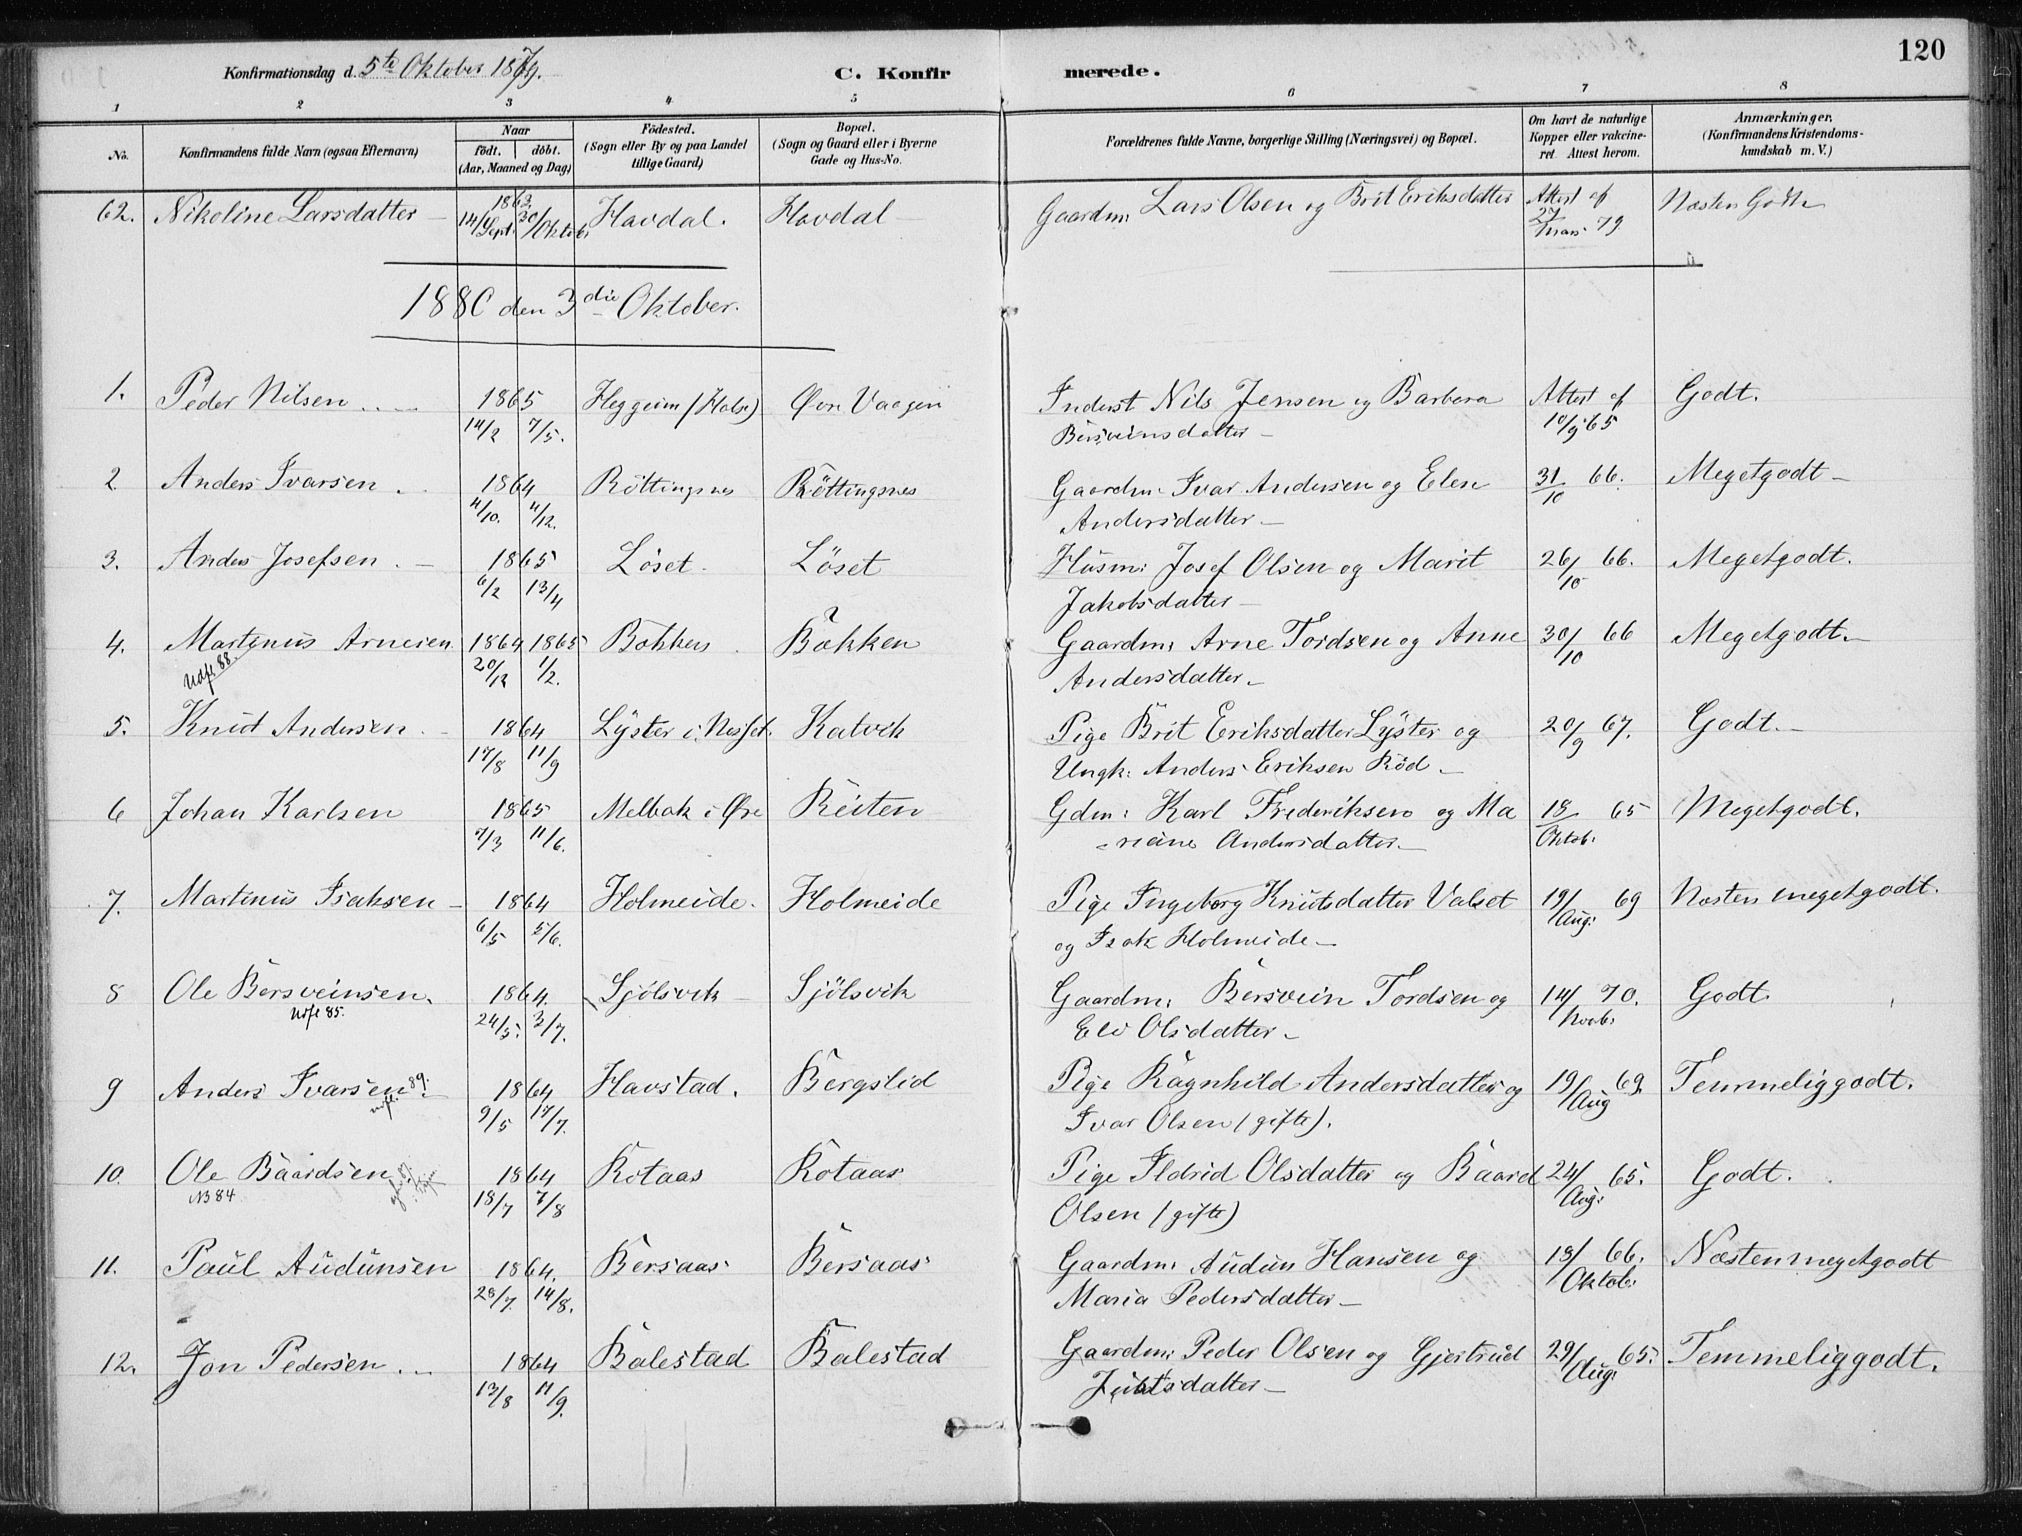 120
Konfirmationsdag d. 5te Oktober 1879.
C. Konfirmerede.
1 2 3 4 5 6 7 8
No.
Konfirmandens fulde Navn (ogsaa Efternavn)
Naar
födt. döbt.
(Aar, Maaned og Dag)
Födested.
(Sogn eller By og paa Landet
tillige Gaard)
Bopæl.
(Sogn og Gaard eller i Byerne
Gade og Hus-No.
Forældrenes fulde Navne, borgerlige Stilling (Næringsvei) og Bopæl.
Om havt de naturlige
Kopper eller vakcine-
ret Attest herom.
Anmærkninger.
(Konfirmandens Kristendoms-
kundskab m. V.)
62. Nikoline Larsdatter 1863 Havdal. Havdal Gaardm: Lars Olsen og Brit Eriksdatter Attest af Næsten Godt
14/Sept. 30/Oktob: 27/Mars 79
1880 den 3die Oktober.
1. Peder Nilsen 1865 Heggeim (Halse) Øvre Vaagen Inderst Nils Jensen og Barbara Attest af Godt.
14/2 7/5. Bersveinsdatter 10/9 65
2 Anders Ivarsen 1864 Röttingsnes Röttingsnes Gaardm: Ivar Andersen og Elen 31/10 66. Megetgodt
4/10. 4/12. Andersdatter
3. Anders Josefsen 1865 Löset Löset Husm: Josef Olsen og Marit 26/10 66. Megetgodt.
6/2 13/4 Jakobsdatter
4. Martinus Arnesen 1864 1865 Bakken Bakken Gaardm: Arne Tordsen og Anne 30/10 66 Megetgodt
Udfl. 88. 20/12 1/2. Andersdatter
5. Knut Andersen 1864 Lyster i Nesset. Kalvik Pige Brit Eriksdatter Lyster og 20/9 67. Godt.
17/8 11/9 Ungk: Anders Eriksen Röd
6 Johan Karlsen 1865 Melbak i Øre Reiten Gdm: Karl Frederiksen og Ma 18/Oktob: 65 Megetgodt.
7/3 11/6. riane Andersdatter
7. Martinus Isaksen 1864 Holmeide. Holmeide Pige Ingeborg Knutsdatter Valset 19/Aug: 69 Næsten megetgodt.
6/5 5/6. og Isak Holmeide
8 Ole Bersveinsen. 1864. Sjölsvik Sjölsvik Gaardm: Bersvein Tordsen og 14/Novb: 70. Godt
Udfl 85. 24/5. 3/7. Eli Olsdatter
9 Anders Ivarsen 1864 Havstad. Bergslid Pige Ragnhild Andersdatter og 19/Aug 69. Temmeliggodt.
udfl. 89. 9/5 17/7. Ivar Olsen (gifte).
10. Ole Baardsen 1864 Rotaas Rotaas Pige Ildrid Olsdatter og Baard 24/Aug: 65. Godt.
N3 84 18/7 7/8 Olsen (gifte)
11. Paul Audunsen 1864. Bersaas Bersaas Gaardm: Audun Hansen og 13/Oktob: 66. Næsten megetgodt
28/7 14/8. Maria Pedersdatter
12. Jon Pedersen 1864 Balestad Balestad Gaardm: Peder Olsen og Gjertrud 29/Aug: 65. Temmeliggodt.
13/8 11/9.